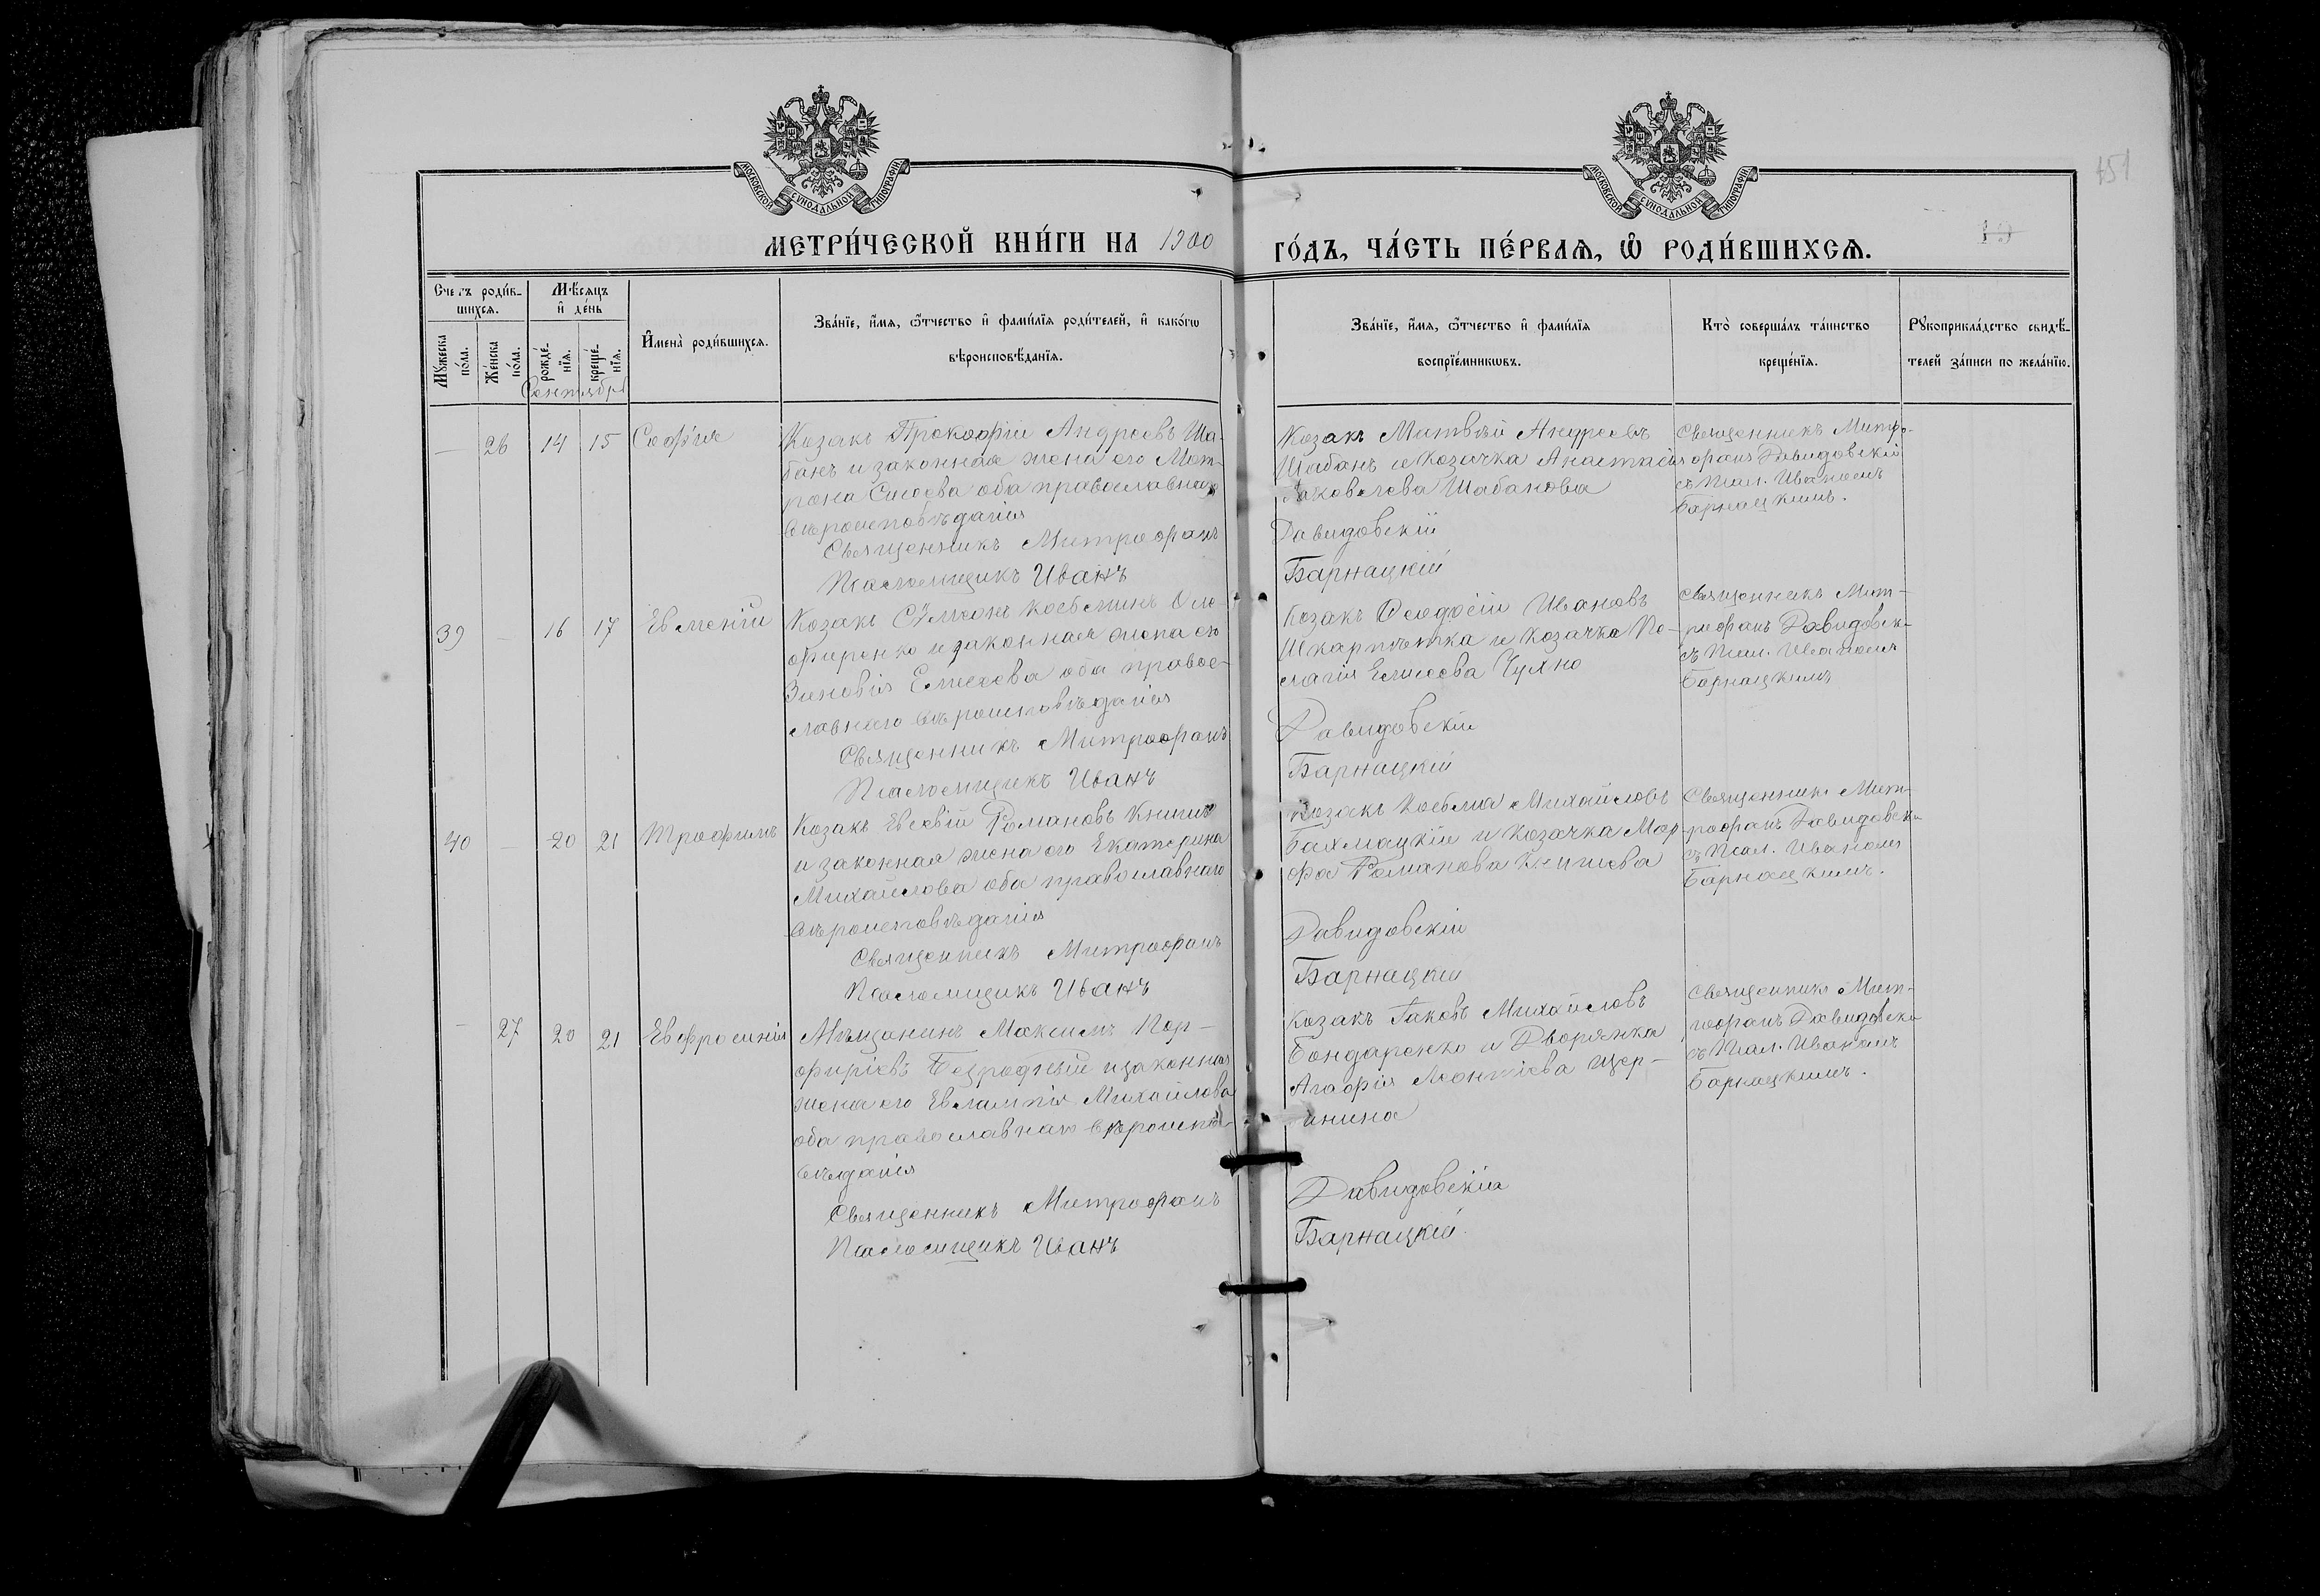 МОСКОВСКОЙ СѴНОДАЛЬНОЙ ТИПОГРАФІИ
МОСКОВСКОЙ СѴНОДАЛЬНОЙ ТИПОГРАФІИ
451
МЕТРИ́ЧЕСКОЙ КНИ́ГИ НА 1900 ГО́ДЪ, ЧА́СТЬ ПЕ́РВАѦ, Ѽ РОДИ́ВШИХСѦ.
Сче́тъ роди́в-
шихся.
Мѣ́сяцъ
и҆ де́нь
И҆мена̀ роди́вшихся.
Зва́нїе, и҆́мя, ѻ҆́тчество и҆ фами́лїя роди́телей, и҆ како́гѡ
вѣроисповѣ́данїя.
Зва́нїе, и҆́мя, ѻ҆́тчество и҆ фами́лїя
воспрїе́мникѡвъ.
Кто̀ соверша́лъ та́инство
креще́нїя.
Рꙋкоприкла́дство свидѣ́-
телей за́писи по жела́нїю.
Мꙋ́жеска
по́ла.
Же́нска
по́ла.
рожде́-
нїя.
креще́-
нїя.
Сентябрь
— 26 14 15 Софія
Козакъ Прокофій Андреевъ Ша-
банъ и законная жена его Мат-
рона Сысоева оба православнаго
вѣроисповѣданія
Священникъ Митрофанъ
Псаломщикъ Иванъ
Козакъ Матвѣй Андреевъ
Шабанъ и козачка Анастасія
Яковлева Шабанова
Давидовскій
Барнацкій
Священникъ Митро-
фанъ Давидовскій
съ Псал. Иваномъ
Барнацкимъ.
39 — 16 17 Евменій
Козакъ Сѵмеонъ Косьминъ Оле-
фиренко и законная жена его
Зиновія Елисеева оба право-
славнаго вѣроисповѣданія
Священникъ Митрофанъ
Псаломщикъ Иванъ
Козакъ Ѳеодосій Ивановъ
Шкарпѣтка и козачка Пе-
лагія Елисеева Чухно
Давидовскій
Барнацкій
Священникъ Мит-
рофанъ Давидовск-
съ Псал. Иваномъ
Барнацкимъ
40 — 20 21 Трофимъ
Козакъ Евсевій Романовъ Книшъ
и законная жена его Екатерина
Михайлова оба православнаго
вѣроисповѣданія
Священникъ Митрофанъ
Псаломщикъ Иванъ
Козакъ Косьма Михайловъ
Бахмацкій и козачка Мар-
фа Романова Книшева
Давидовскій
Барнацкій
Священникъ Мит-
рофанъ Давидовск-
съ Псал. Иваномъ
Барнацкимъ.
— 27 20 21 Евфросинія
Мѣщанинъ Максимъ Пор-
фиріевъ Безродный и законная
жена его Евлампія Михайлова
оба православнаго вѣроиспо-
вѣданія
Священникъ Митрофанъ
Псаломщикъ Иванъ
Козакъ Іаковъ Михайловъ
Бондаренко и Дворянка
Агафія Леонтіева Щер-
инина
Давидовскій
Барнацкій
Священникъ Мит-
рофанъ Давидовск-
съ Псал. Иваномъ
Барнацкимъ.